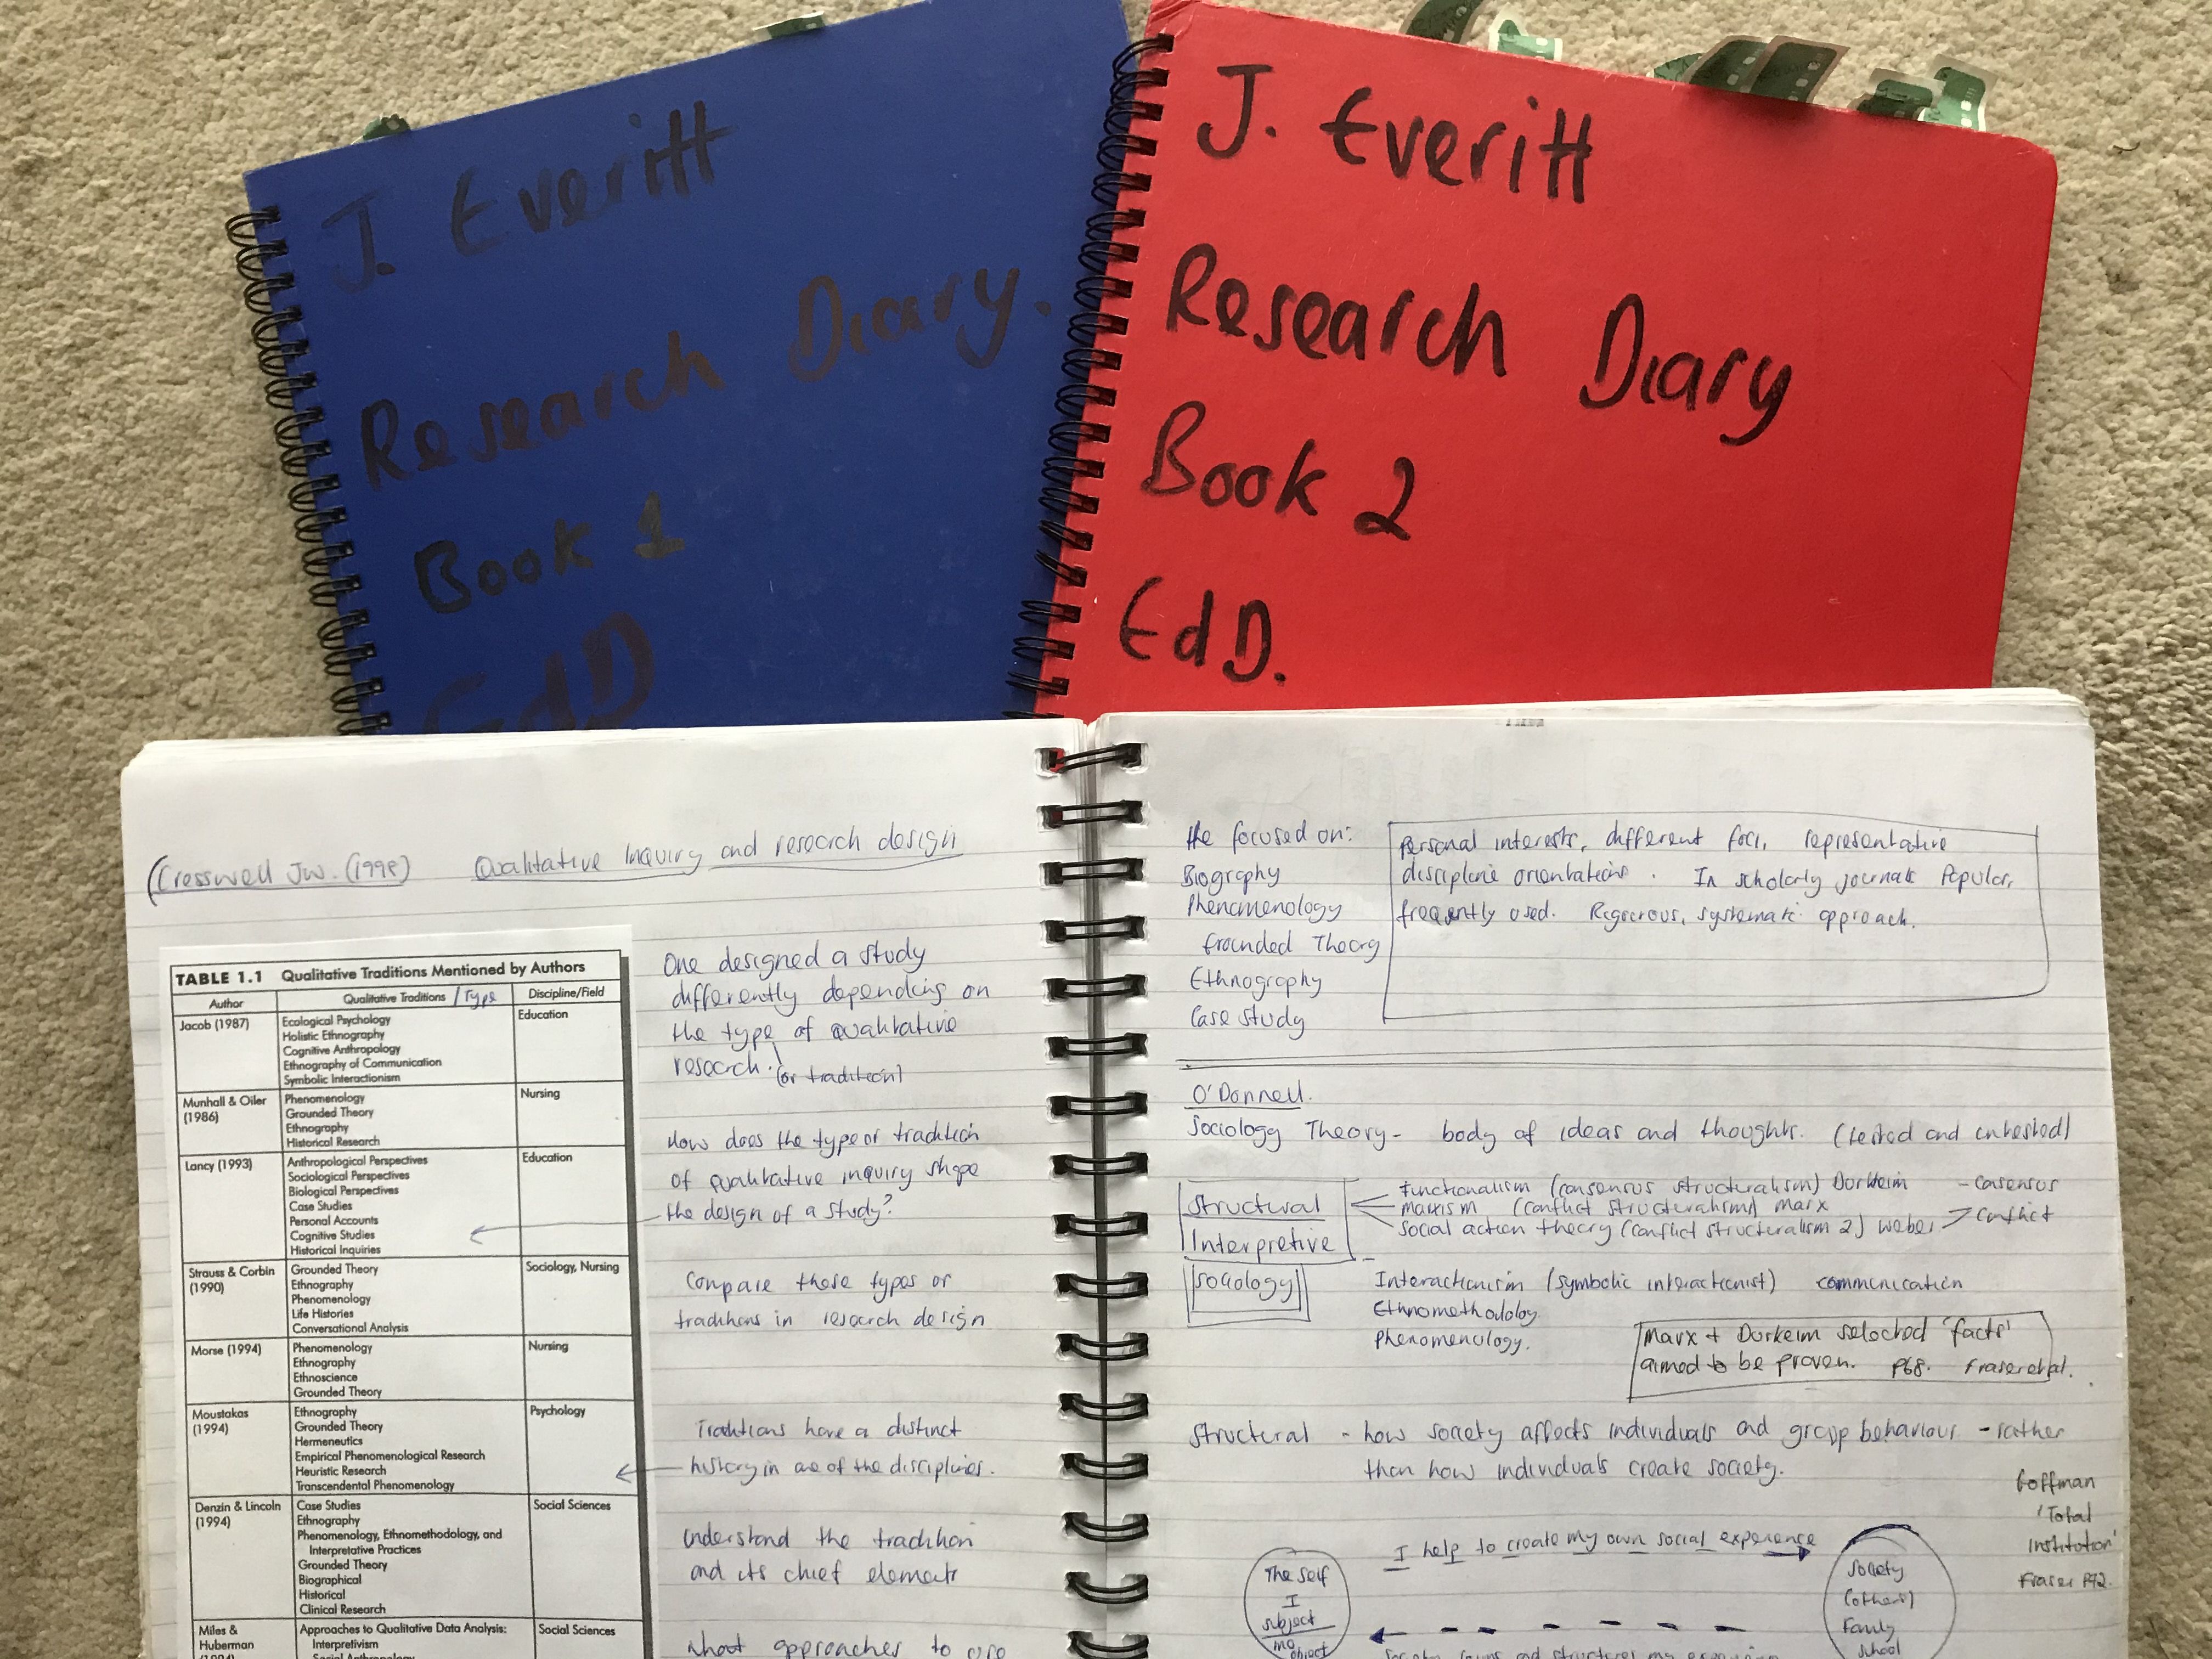 J. Everitt
Research Diary.
Book 1
EdD
J. Everitt
Research Diary
Book 2
EdD.
(Cresswell JW. (1998) Qualitative Inquiry and research design
TABLE 1.1 Qualitative Traditions Mentioned by Authors
Author Qualitative Traditions / Type Discipline/Field
Jacob (1987) Ecological Psychology Education
Holistic Ethnography
Cognitive Anthropology
Ethnography of Communication
Symbolic Interactionism
Munhall & Oiler Phenomenology Nursing
(1986) Grounded Theory
Ethnography
Historical Research
Lancy (1993) Anthropological Perspectives Education
Sociological Perspectives
Biological Perspectives
Case Studies
Personal Accounts
Cognitive Studies
Historical Inquiries
Strauss & Corbin Grounded Theory Sociology, Nursing
(1990) Ethnography
Phenomenology
Life Histories
Conversational Analysis
Morse (1994) Phenomenology Nursing
Ethnography
Ethnoscience
Grounded Theory
Moustakas Ethnography Psychology
(1994) Grounded Theory
Hermeneutics
Empirical Phenomenological Research
Heuristic Research
Transcendental Phenomenology
Denzin & Lincoln Case Studies Social Sciences
(1994) Ethnography
Phenomenology, Ethnomethodology, and
Interpretative Practices
Grounded Theory
Biographical
Historical
Clinical Research
Miles & Approaches to Qualitative Data Analysis: Social Sciences
Huberman Interpretivism
(1994) Social Anthropology
One designed a study
differently depending on
the type of qualitative
research. (or tradition)
How does the type or tradition
of qualitative inquiry shape
the design of a study?
Compare these types or
traditions in research design
Traditions have a distinct
history in one of the disciplines.
Understand the tradition
and its chief elements
What approaches to use
He focused on:
Biography
Phenomenology
Grounded Theory
Ethnography
Case Study
Personal interests, different foci, representative
discipline orientations. In scholarly journals Popular,
frequently used. Rigorous, systematic approach.
O'Donnell.
Sociology Theory - body of ideas and thoughts. (tested and untested)
Structural
Interpretive
Sociology
Functionalism (consensus structuralism) Durkeim - Consensus
Marxism (conflict structuralism) Marx
Social action theory (conflict structuralism 2) Weber > Conflict
Interactionism (symbolic interactionist) communication
Ethnomethodology
Phenomenology.
Marx + Durkeim selected 'facts'
aimed to be proven. P68. Fraser et al.
Structural - how society affects individuals and group behaviour - rather
than how individuals create society.
Goffman
'Total
Institution'
Fraser P92.
I help to create my own social experience
The self
I
subject
me
object
Society
(others)
Family
School